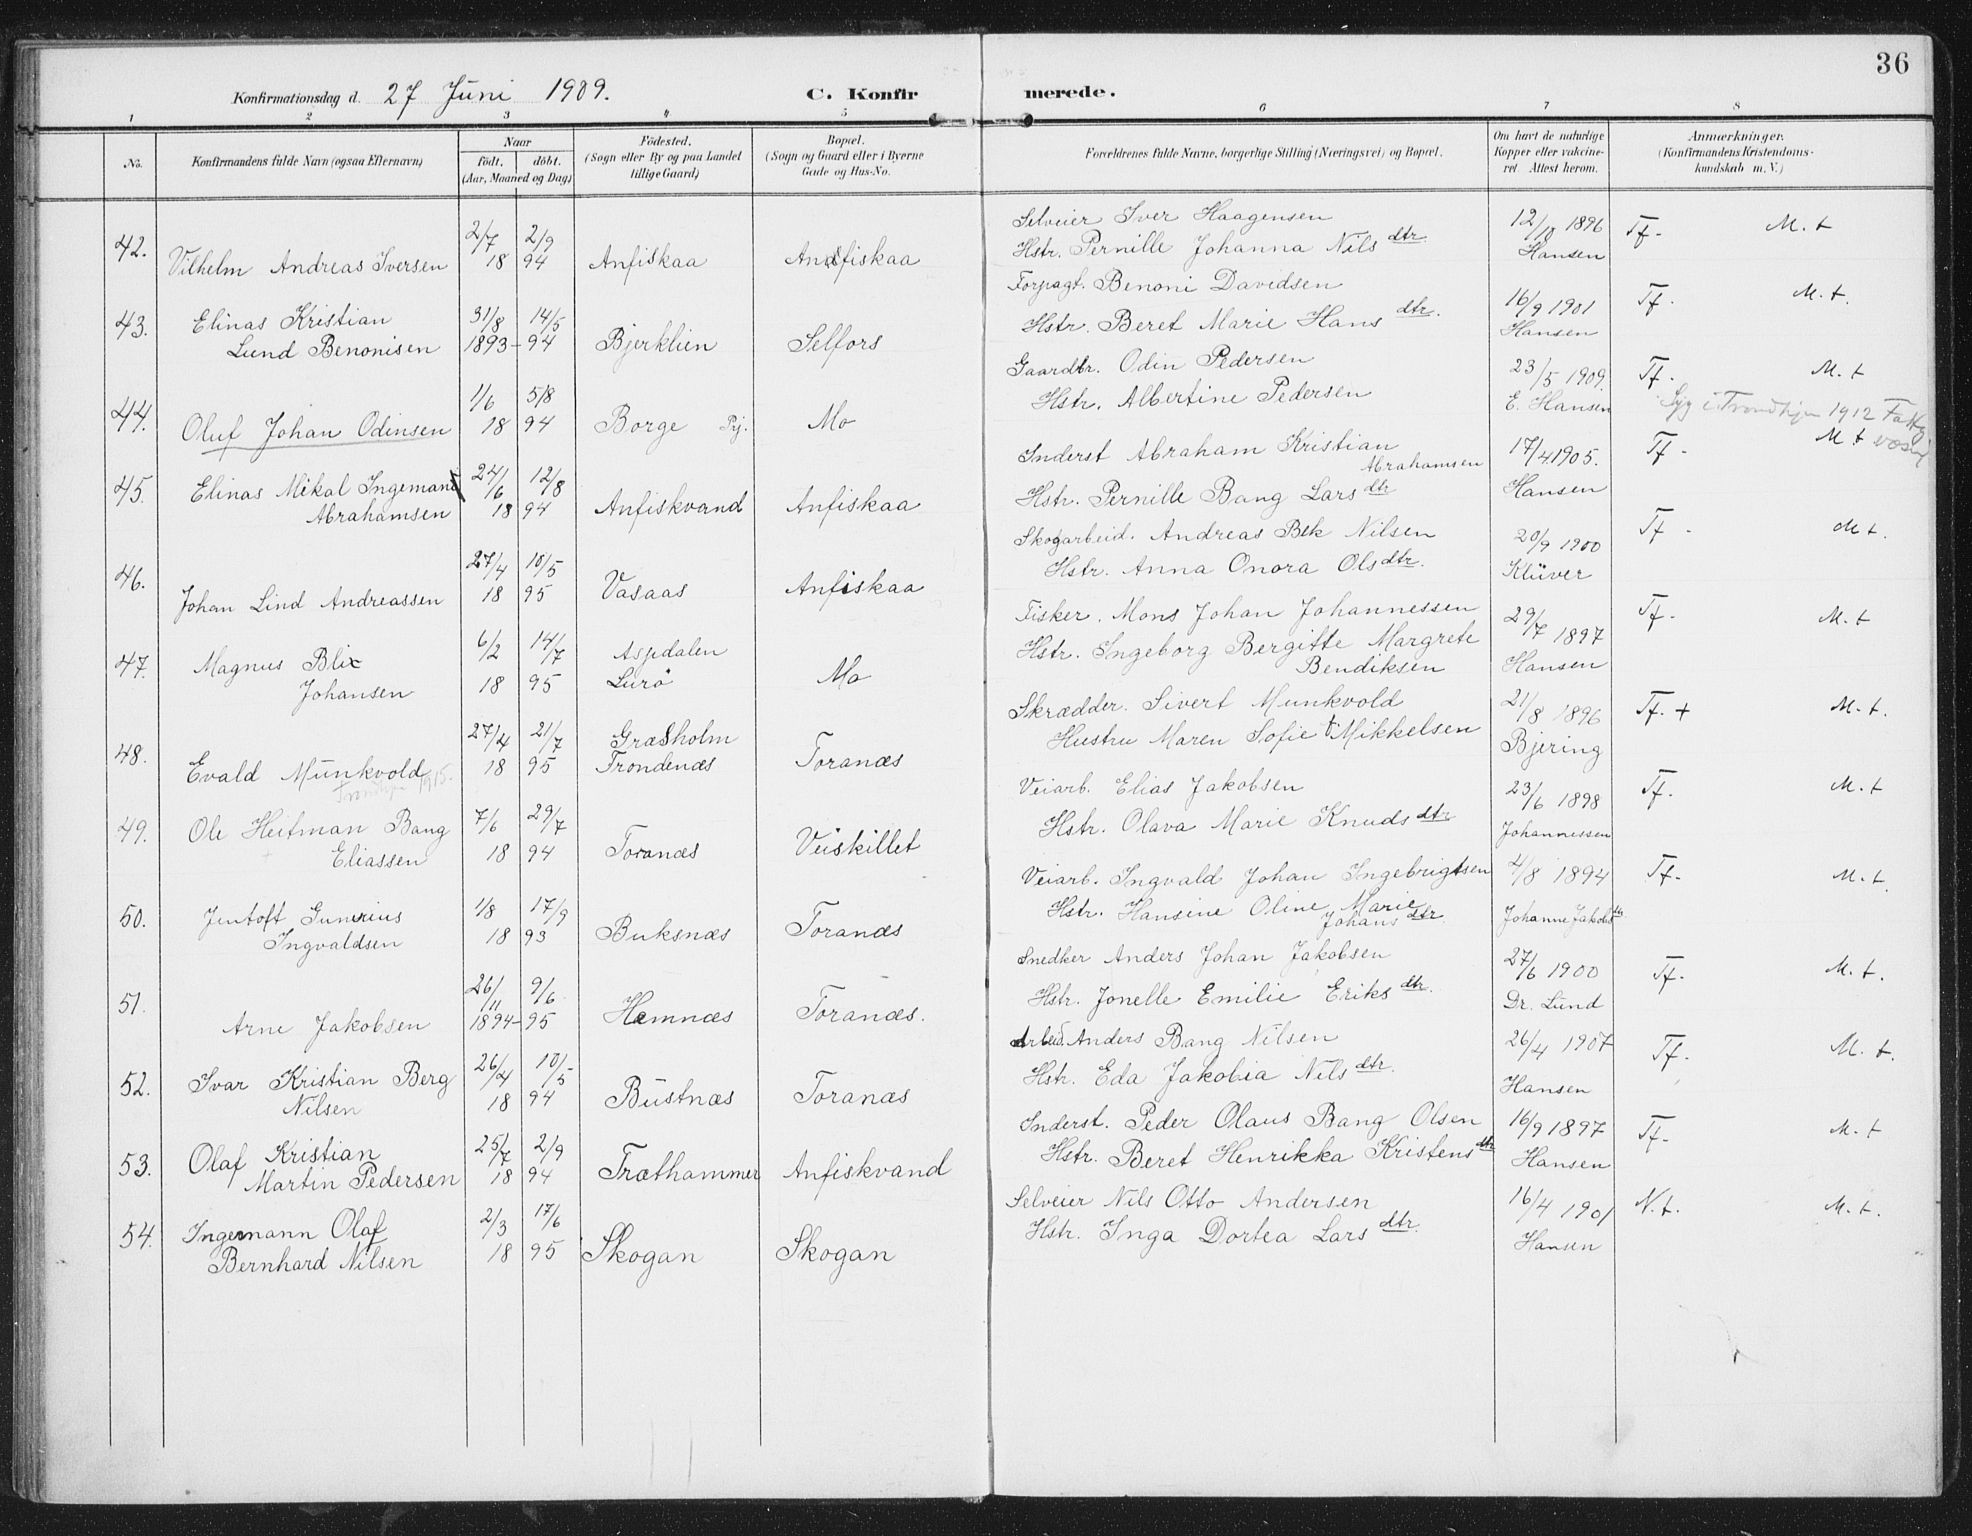 36
Konfirmationsdag d. 27 Juni 1909. C. Konfirmerede.
1 2 3 4 5 6 7 8
No. Konfirmandens fulde Navn (ogsaa Efternavn) Naar født, døbt. (Aar, Maaned og Dag) Fødested. (Sogn eller By og paa Landet tillige Gaard) Bopæl. (Sogn og Gaard eller i Byerne Gade og Hus-No. Forældrenes fulde Navne, borgerlige Stilling (Næringsvei) og Bopæl. Om havt de naturlige Kopper eller vaccineret. Attest herom. Anmærkninger. (Konfirmandens Kristendomskundskab m. V.)
Selveier Iver Haagensen 12/10 1896 Tf. M. t
42. Vilhelm Andreas Iversen 2/7 2/9 18 94 Anfiskaa Anfiskaa Hstr. Pernille Johanna Nilsdtr. Hansen
Forpagt. Benoni Davidsen 16/9 1901 Tf. M. t.
43. Elinas Kristian 31/8 14/5 Hstr. Beret Marie Hansdtr. Hansen
Lund Benonisen 1893-94 Bjerklien Selfors
Gaardbr. Odin Pedersen 23/5 1909. Tf. M. t
44. Oluf Johan Odinsen 1/6 5/8 18 94 Borge Pj. Mo Hstr. Albertine Pedersen E. Hansen Syg i Trondhjem 1912
Inderst Abraham Kristian Abrahamsen 17/4 1905. Tf. M t
45. Elinas Mikal Ingeman 24/6 12/8 Hstr. Pernille Bang Larsdtr Hansen
Abrahamsen 18 94 Anfiskvand Anfiskaa
Skogarbeid. Andreas Bek Nilsen 20/9 1900 Tf. M t.
46. Johan Lind Andreassen 27/4 10/5 18 95 Vasaas Anfiskaa Hstr. Anna Onora Olsdtr. Klüver
Fisker. Mons Johan Johannessen 29/7 1897 Tf. M. t
47. Magnus Blix 6/2 14/7 Aspdalen Hstr. Ingeborg Bergitte Margrete Bendiksen Hansen
Johansen 18 95 Lurö Mo
Skrædder. Sivert Munkvold 21/8 1896 Tf. + M. t.
48. Evald Munkvold 27/4 21/7 18 95 Græsholm Trondenæs Toranæs Hustru Maren Sofie Mikkelsen Bjering
Trondhjem 1915.
Veiarb. Elias Jakobsen 23/6 1898 Tf. M. t
49. Ole Heitman Bang 7/6 29/7 Hstr. Olava Marie Knudsdtr Johannessen
Eliassen 18 94 Toranæs Veiskillet
Veiarb. Ingvald Johan Ingebrigtsen 4/8 1894 Tf. M. t.
50. Jentoft Gunerius 1/8 17/9 Hstr. Hansine Oline Marie Johansdtr. Johanne Jakobsdtr.
Ingvaldsen 18 93 Buksnæs Toranæs
Snedker Anders Johan Jakobsen 27/6 1900 Tf. M. t.
51. Arne Jakobsen 26/11 9/6 1894-95 Hemnæs Toranæs. Hstr. Jonelle Emilie Eriksdtr. Dr. Lund
Arbeid. Anders Bang Nilsen 26/4 1907 Tf. M. t.
52. Ivar Kristian Berg 26/4 10/5 Hstr. Eda Jakobia Nilsdtr. Hansen
Nilsen 18 94 Büstnæs Toranæs
Inderst. Peder Olaus Bang Olsen 16/9 1897 Tf. M. t
53. Olaf Kristian 25/7 2/9 Hstr. Beret Henrikka Kristensdtr Hansen
Martin Pedersen 18 94 Træthammer Anfiskvand
Selveier Nils Otto Andersen 16/4 1901 N. t. M. t.
54. Ingemann Olaf 2/3 17/6 Hstr. Inga Dortea Larsdtr. Hansen
Bernhard Nilsen 18 95 Skogan Skogan